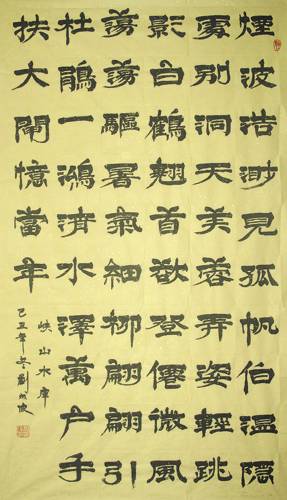 煙波浩渺見孤帆伯温隱
處別洞天芙蓉弄姿輕跳
影白鶴翹首欲登僊微風
蕩蕩驅暑氣細柳翩翩引
杜鵑一鴻濟水澤萬户手
扶大閘憶當年
峽山水庫
己丑年冬劉